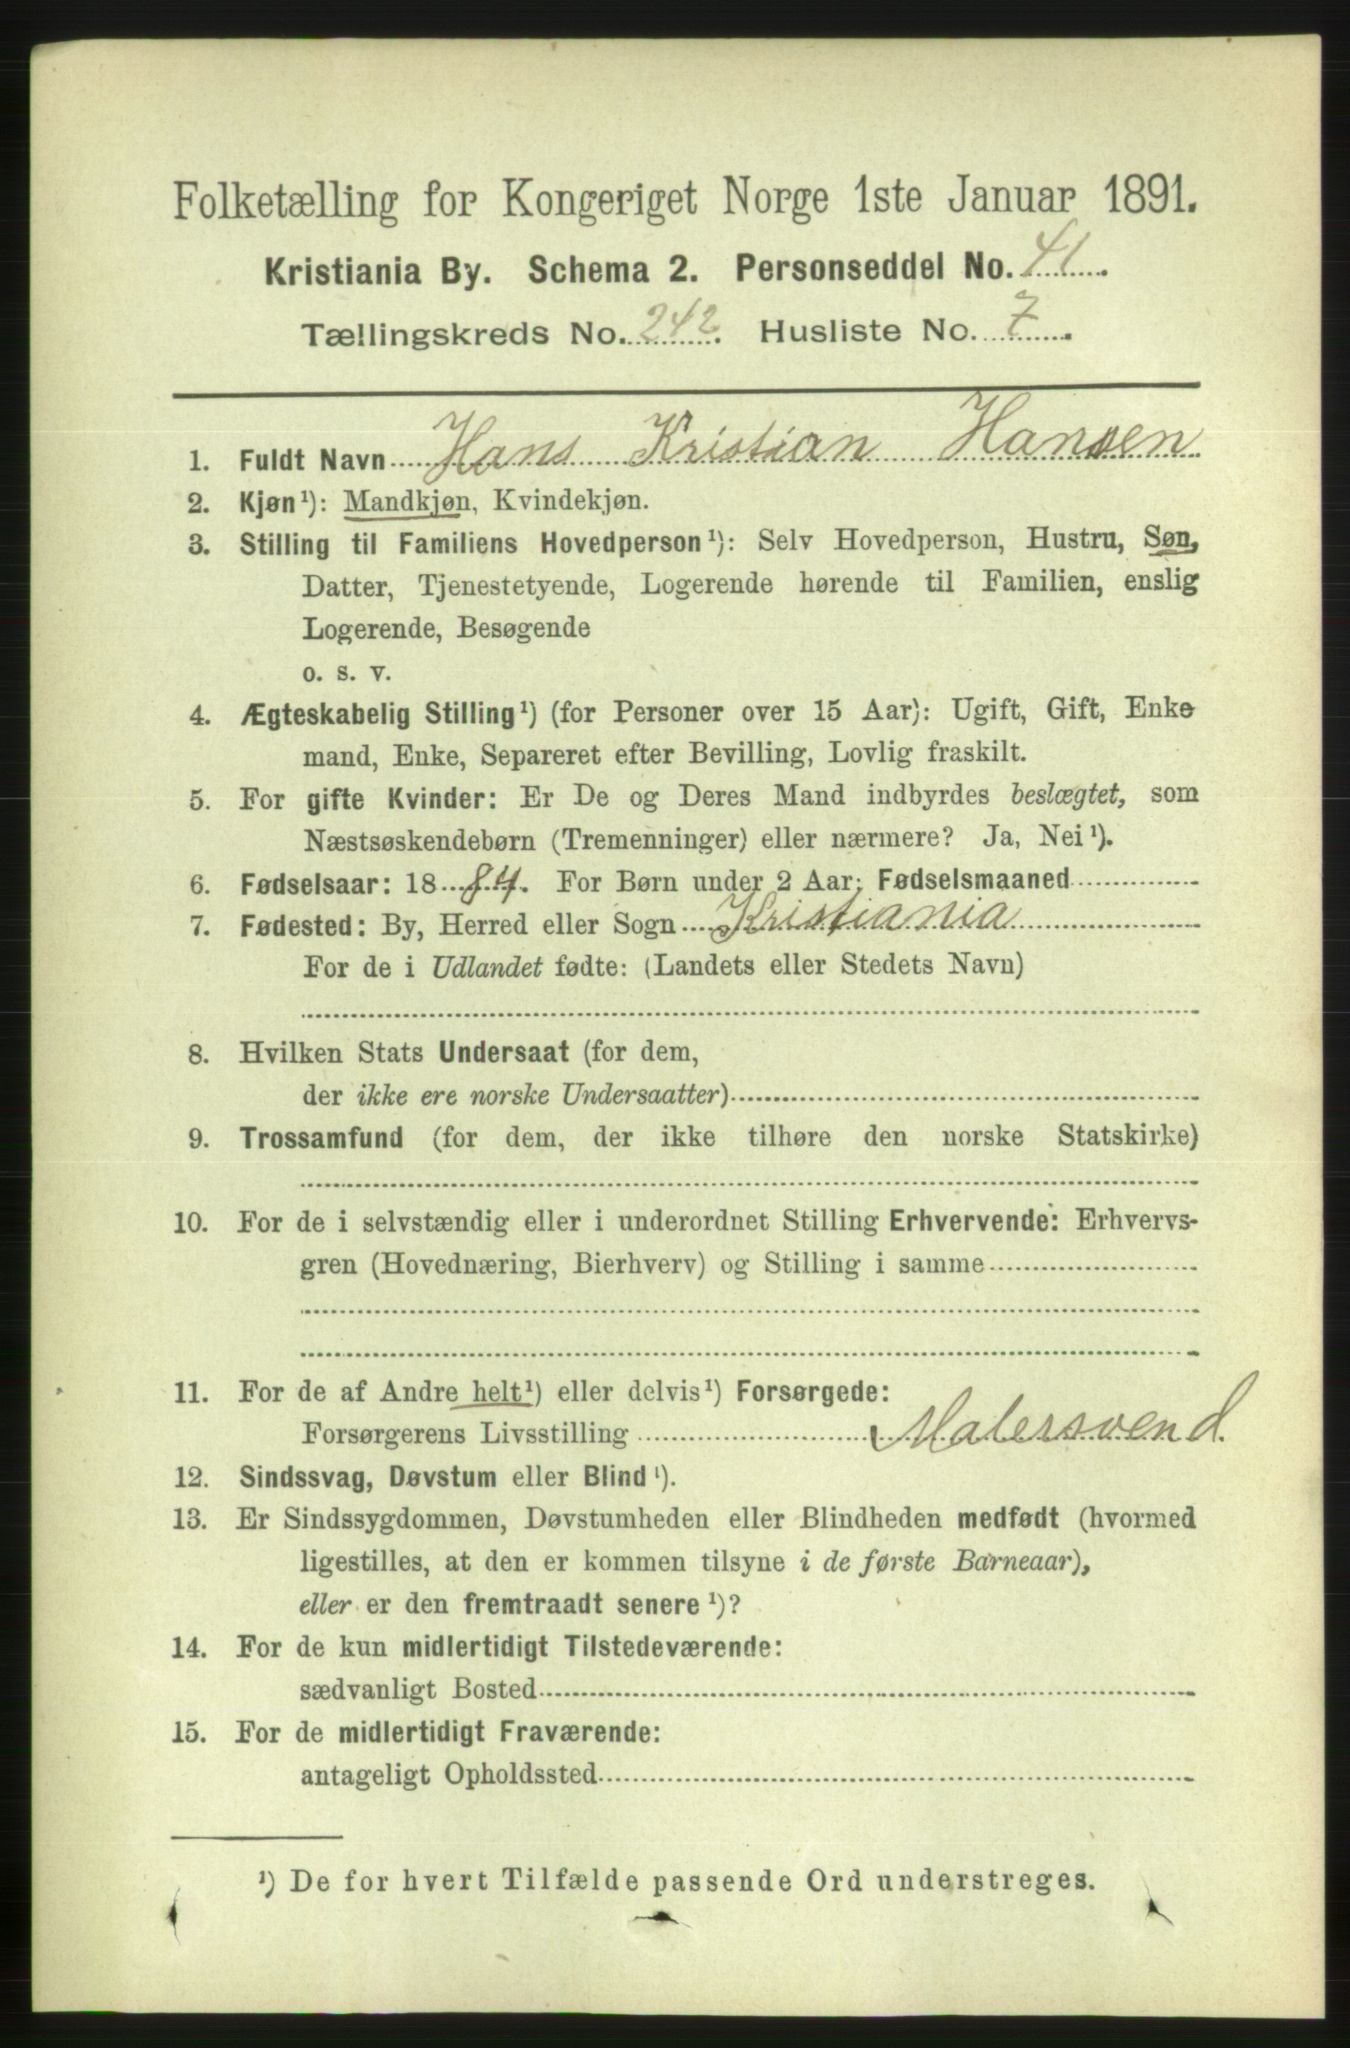 Folketælling for Kongeriget Norge 1ste Januar 1891.
Kristiania By. Schema 2. Personseddel No. 41.
Tællingskreds No. 242. Husliste No. 7.
1. Fuldt Navn Hans Kristian Hansen
2. Kjøn¹): Mandkjøn, Kvindekjøn.
3. Stilling til Familiens Hovedperson¹): Selv Hovedperson, Hustru, Søn,
Datter, Tjenestetyende, Logerende hørende til Familien, enslig
Logerende, Besøgende
o. s. v.
4. Ægteskabelig Stilling¹) (for Personer over 15 Aar): Ugift, Gift, Enke
mand, Enke, Separeret efter Bevilling, Lovlig fraskilt.
5. For gifte Kvinder: Er De og Deres Mand indbyrdes beslægtet, som
Næstsøskendebørn (Tremenninger) eller nærmere? Ja, Nei¹).
6. Fødselsaar: 1884. For Børn under 2 Aar: Fødselsmaaned
7. Fødested: By, Herred eller Sogn Kristiania
For de i Udlandet fødte: (Landets eller Stedets Navn)
8. Hvilken Stats Undersaat (for dem,
der ikke ere norske Undersaatter)
9. Trossamfund (for dem, der ikke tilhøre den norske Statskirke)
10. For de i selvstændig eller i underordnet Stilling Erhvervende: Erhvervs-
gren (Hovednæring, Bierhverv) og Stilling i samme
11. For de af Andre helt¹) eller delvis¹) Forsørgede:
Forsørgerens Livsstilling Malersvend.
12. Sindssvag, Døvstum eller Blind¹).
13. Er Sindssygdommen, Døvstumheden eller Blindheden medfødt (hvormed
ligestilles, at den er kommen tilsyne i de første Barneaar),
eller er den fremtraadt senere¹)?
14. For de kun midlertidigt Tilstedeværende:
sædvanligt Bosted
15. For de midlertidigt Fraværende:
antageligt Opholdssted
¹) De for hvert Tilfælde passende Ord understreges.